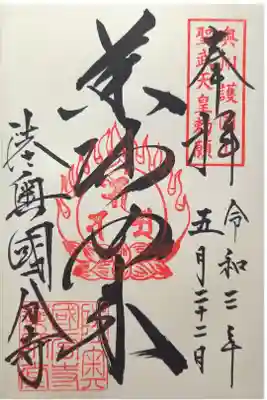 奉拝
聖武天皇勅願
令和三年
五月二十二日
薬師如来
陸奥國分寺